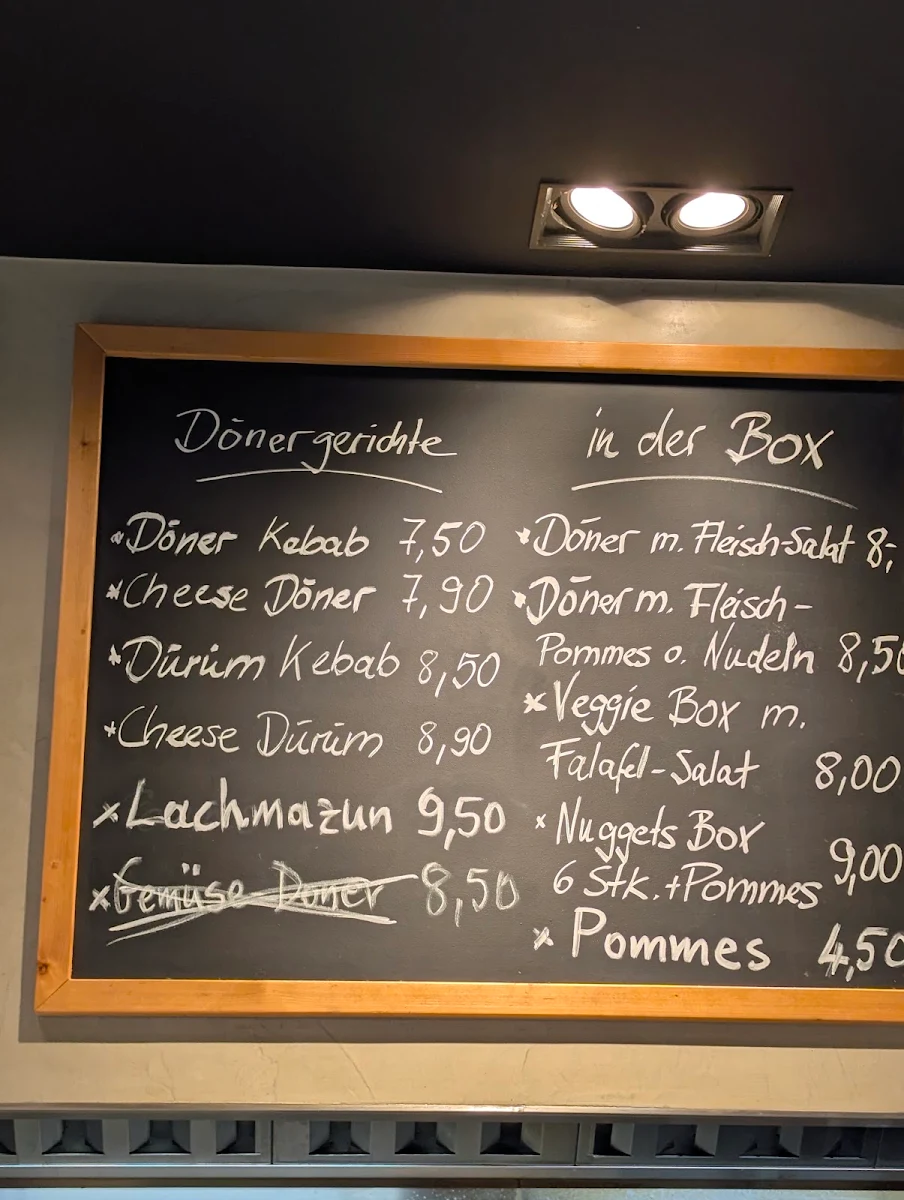 Dönergerichte
Döner Kebab 7,50
Cheese Döner 7,90
Dürüm Kebab 8,50
Cheese Dürüm 8,90
Lachmazun 9,50
Gemüse Döner 8,50
in der Box
Döner m. Fleisch-Salat 8,-
Döner m. Fleisch-
Pommes o. Nudeln 8,50
Veggie Box m.
Falafel-Salat 8,00
Nuggets Box
6 Stk. + Pommes 9,00
Pommes 4,50